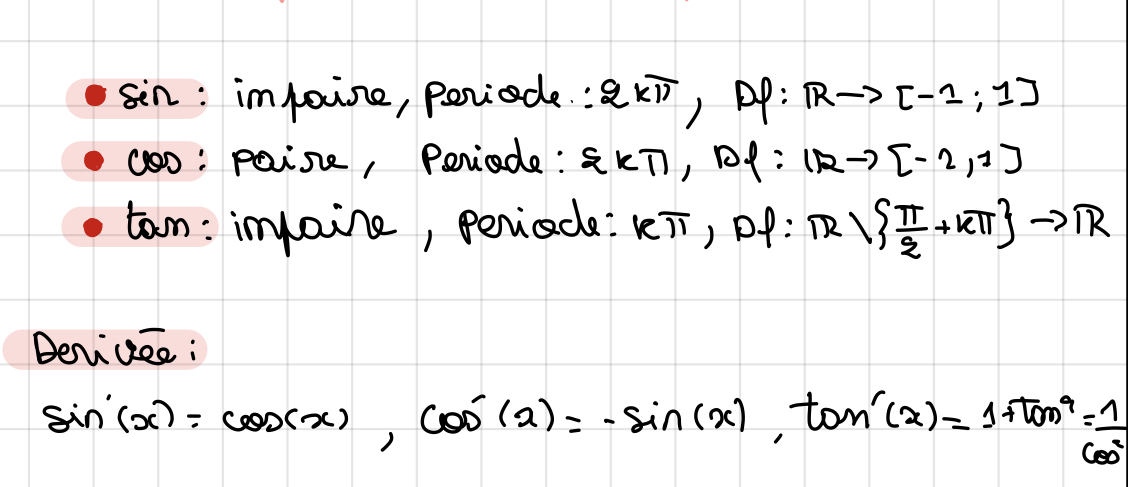 • sin : impaire, periode : 2kπ, Df : ℝ → [-1 ; 1]
• cos : paire, Periode : 2kπ, Df : ℝ → [-1, 1]
• tan : impaire, periode : kπ, Df : ℝ \ {π/2 + kπ} → ℝ
Derivée :
sin'(x) = cos(x), cos'(x) = -sin(x), tan'(x) = 1+tan² = 1/cos²